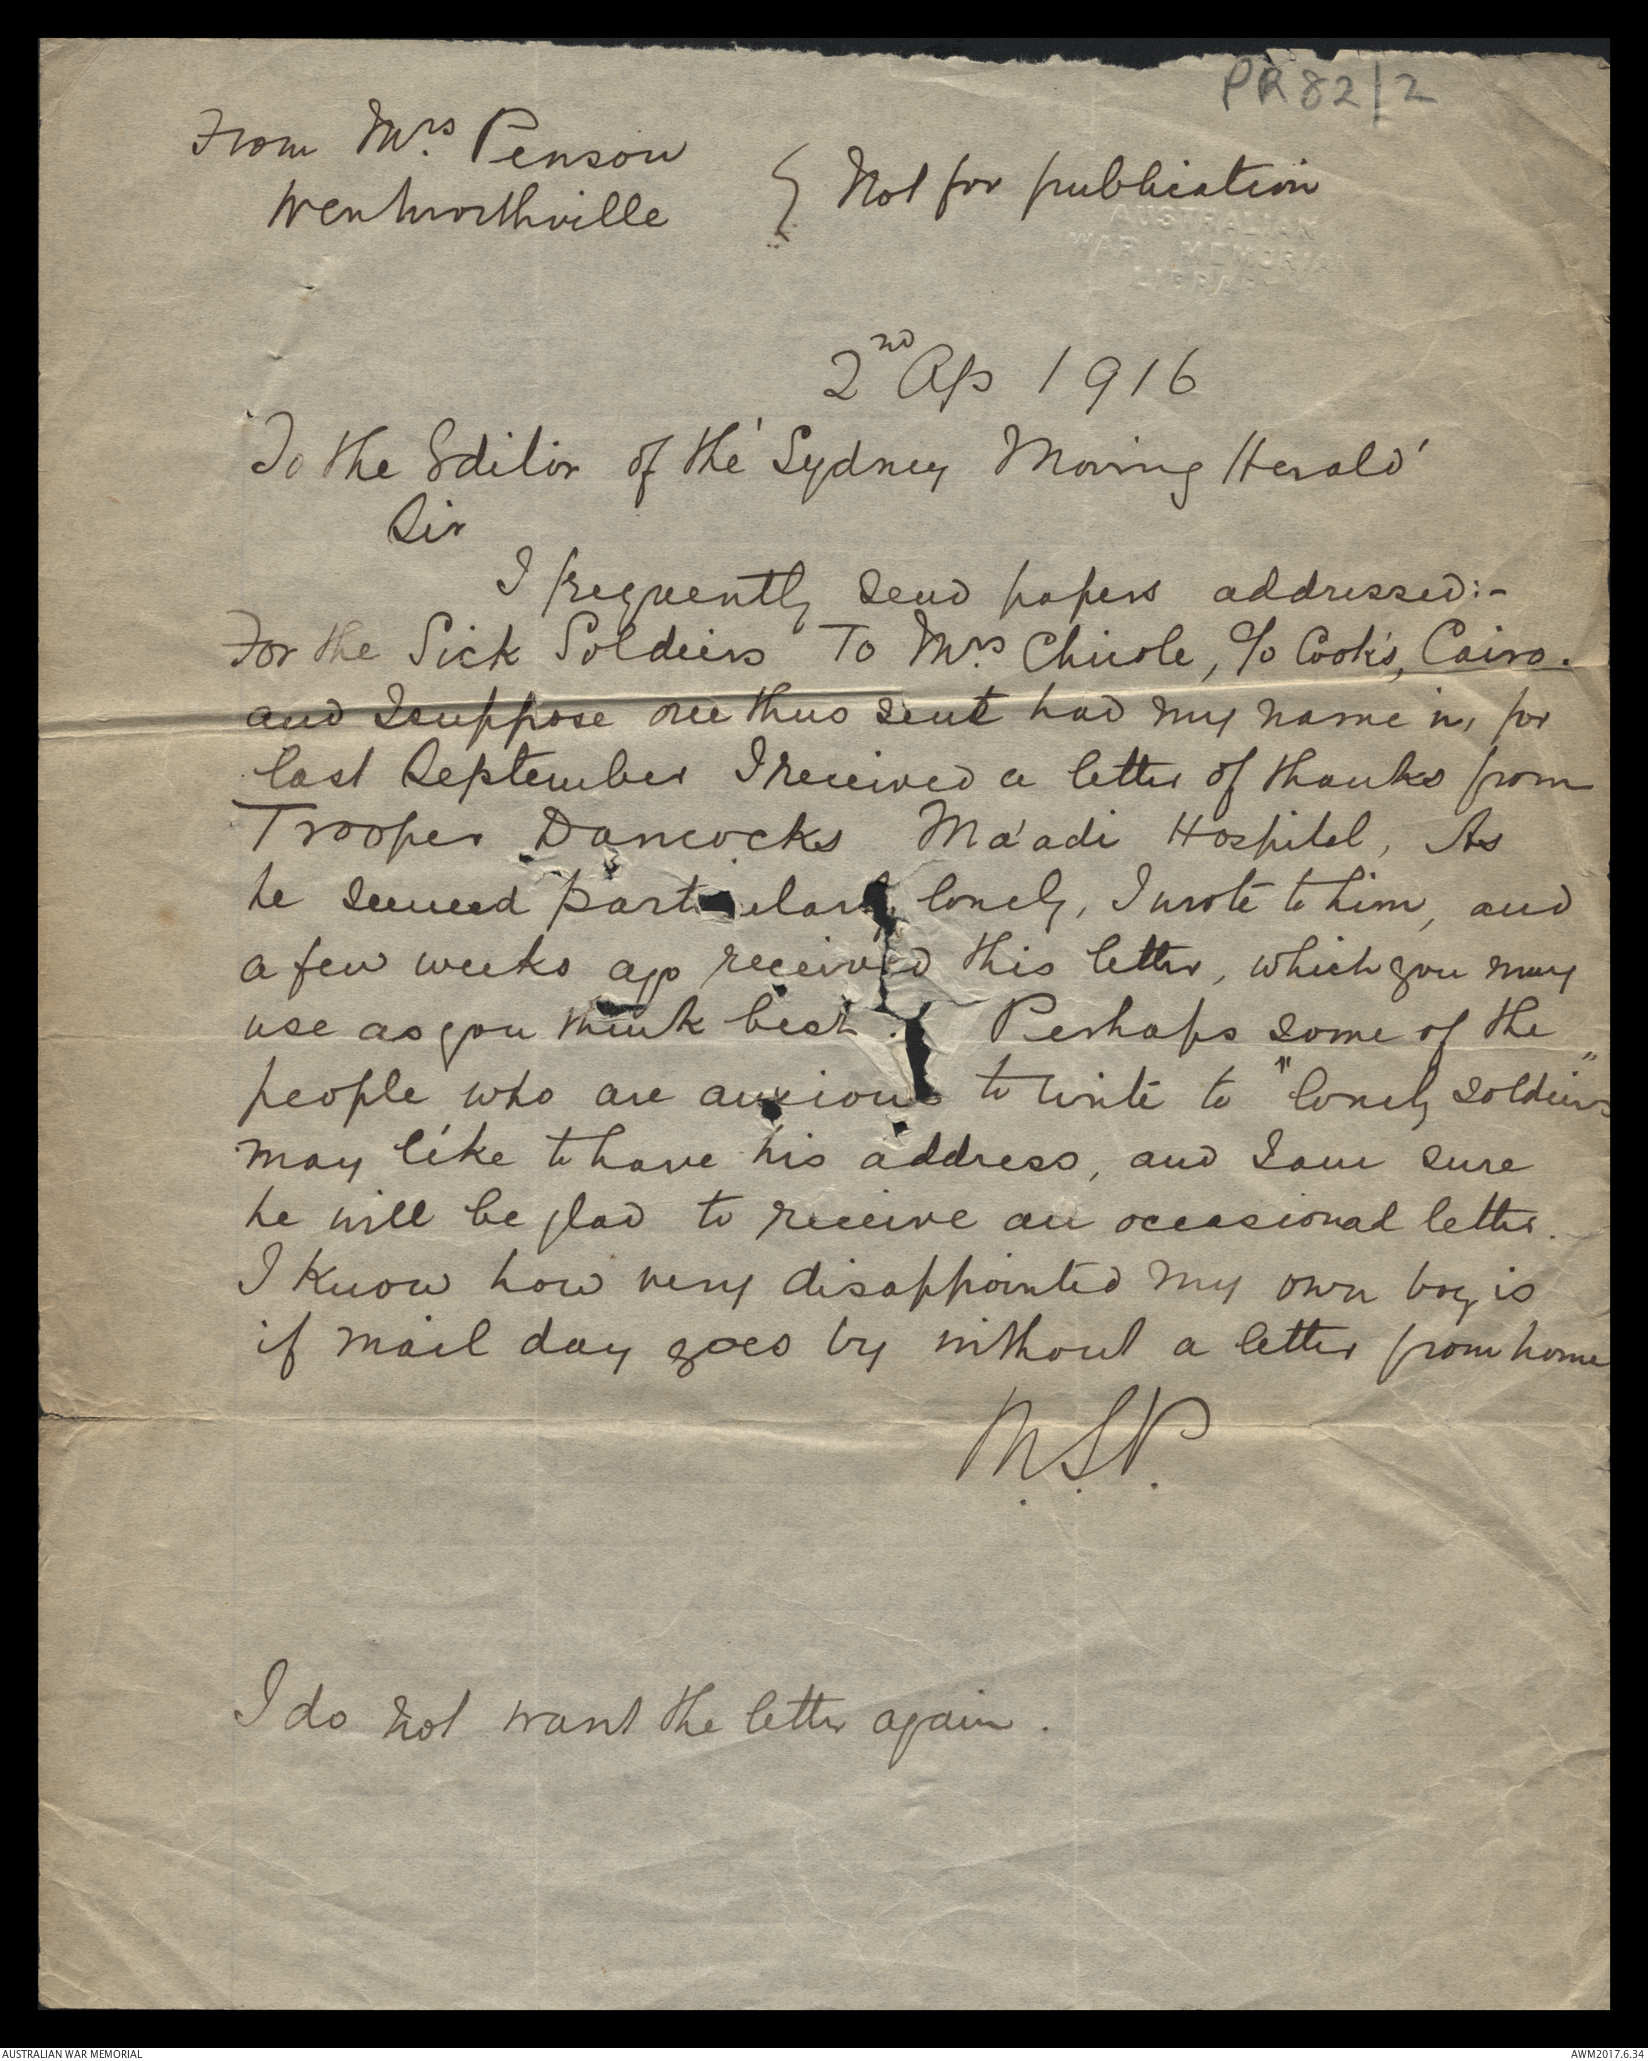 PR 82/2
From Mrs. Penson
Wentworthville
} Not for publication
AUSTRALIAN
WAR MEMORIAL
LIBRARY
2nd Ap 1916
To the Editor of the 'Sydney Morning Herald'
Sir
I frequently send papers addressed:-
For the Sick Soldiers To Mrs. Chisole, c/o Cook's, Cairo.
and I suppose one thus sent had my name in, for
last September I received a letter of thanks from
Trooper Dancocks Ma'adi Hospital, As
he seemed particularly lonely, I wrote to him, and
a few weeks ago received this letter, which you may
use as you think best. Perhaps some of the
people who are anxious to write to "lonely soldiers"
may like to have his address, and I am sure
he will be glad to receive an occasional letter.
I know how very disappointed my own boy is
if mail day goes by without a letter from home
M.S.P.
I do not want the letter again.
AUSTRALIAN WAR MEMORIAL
AWM2017.6.34